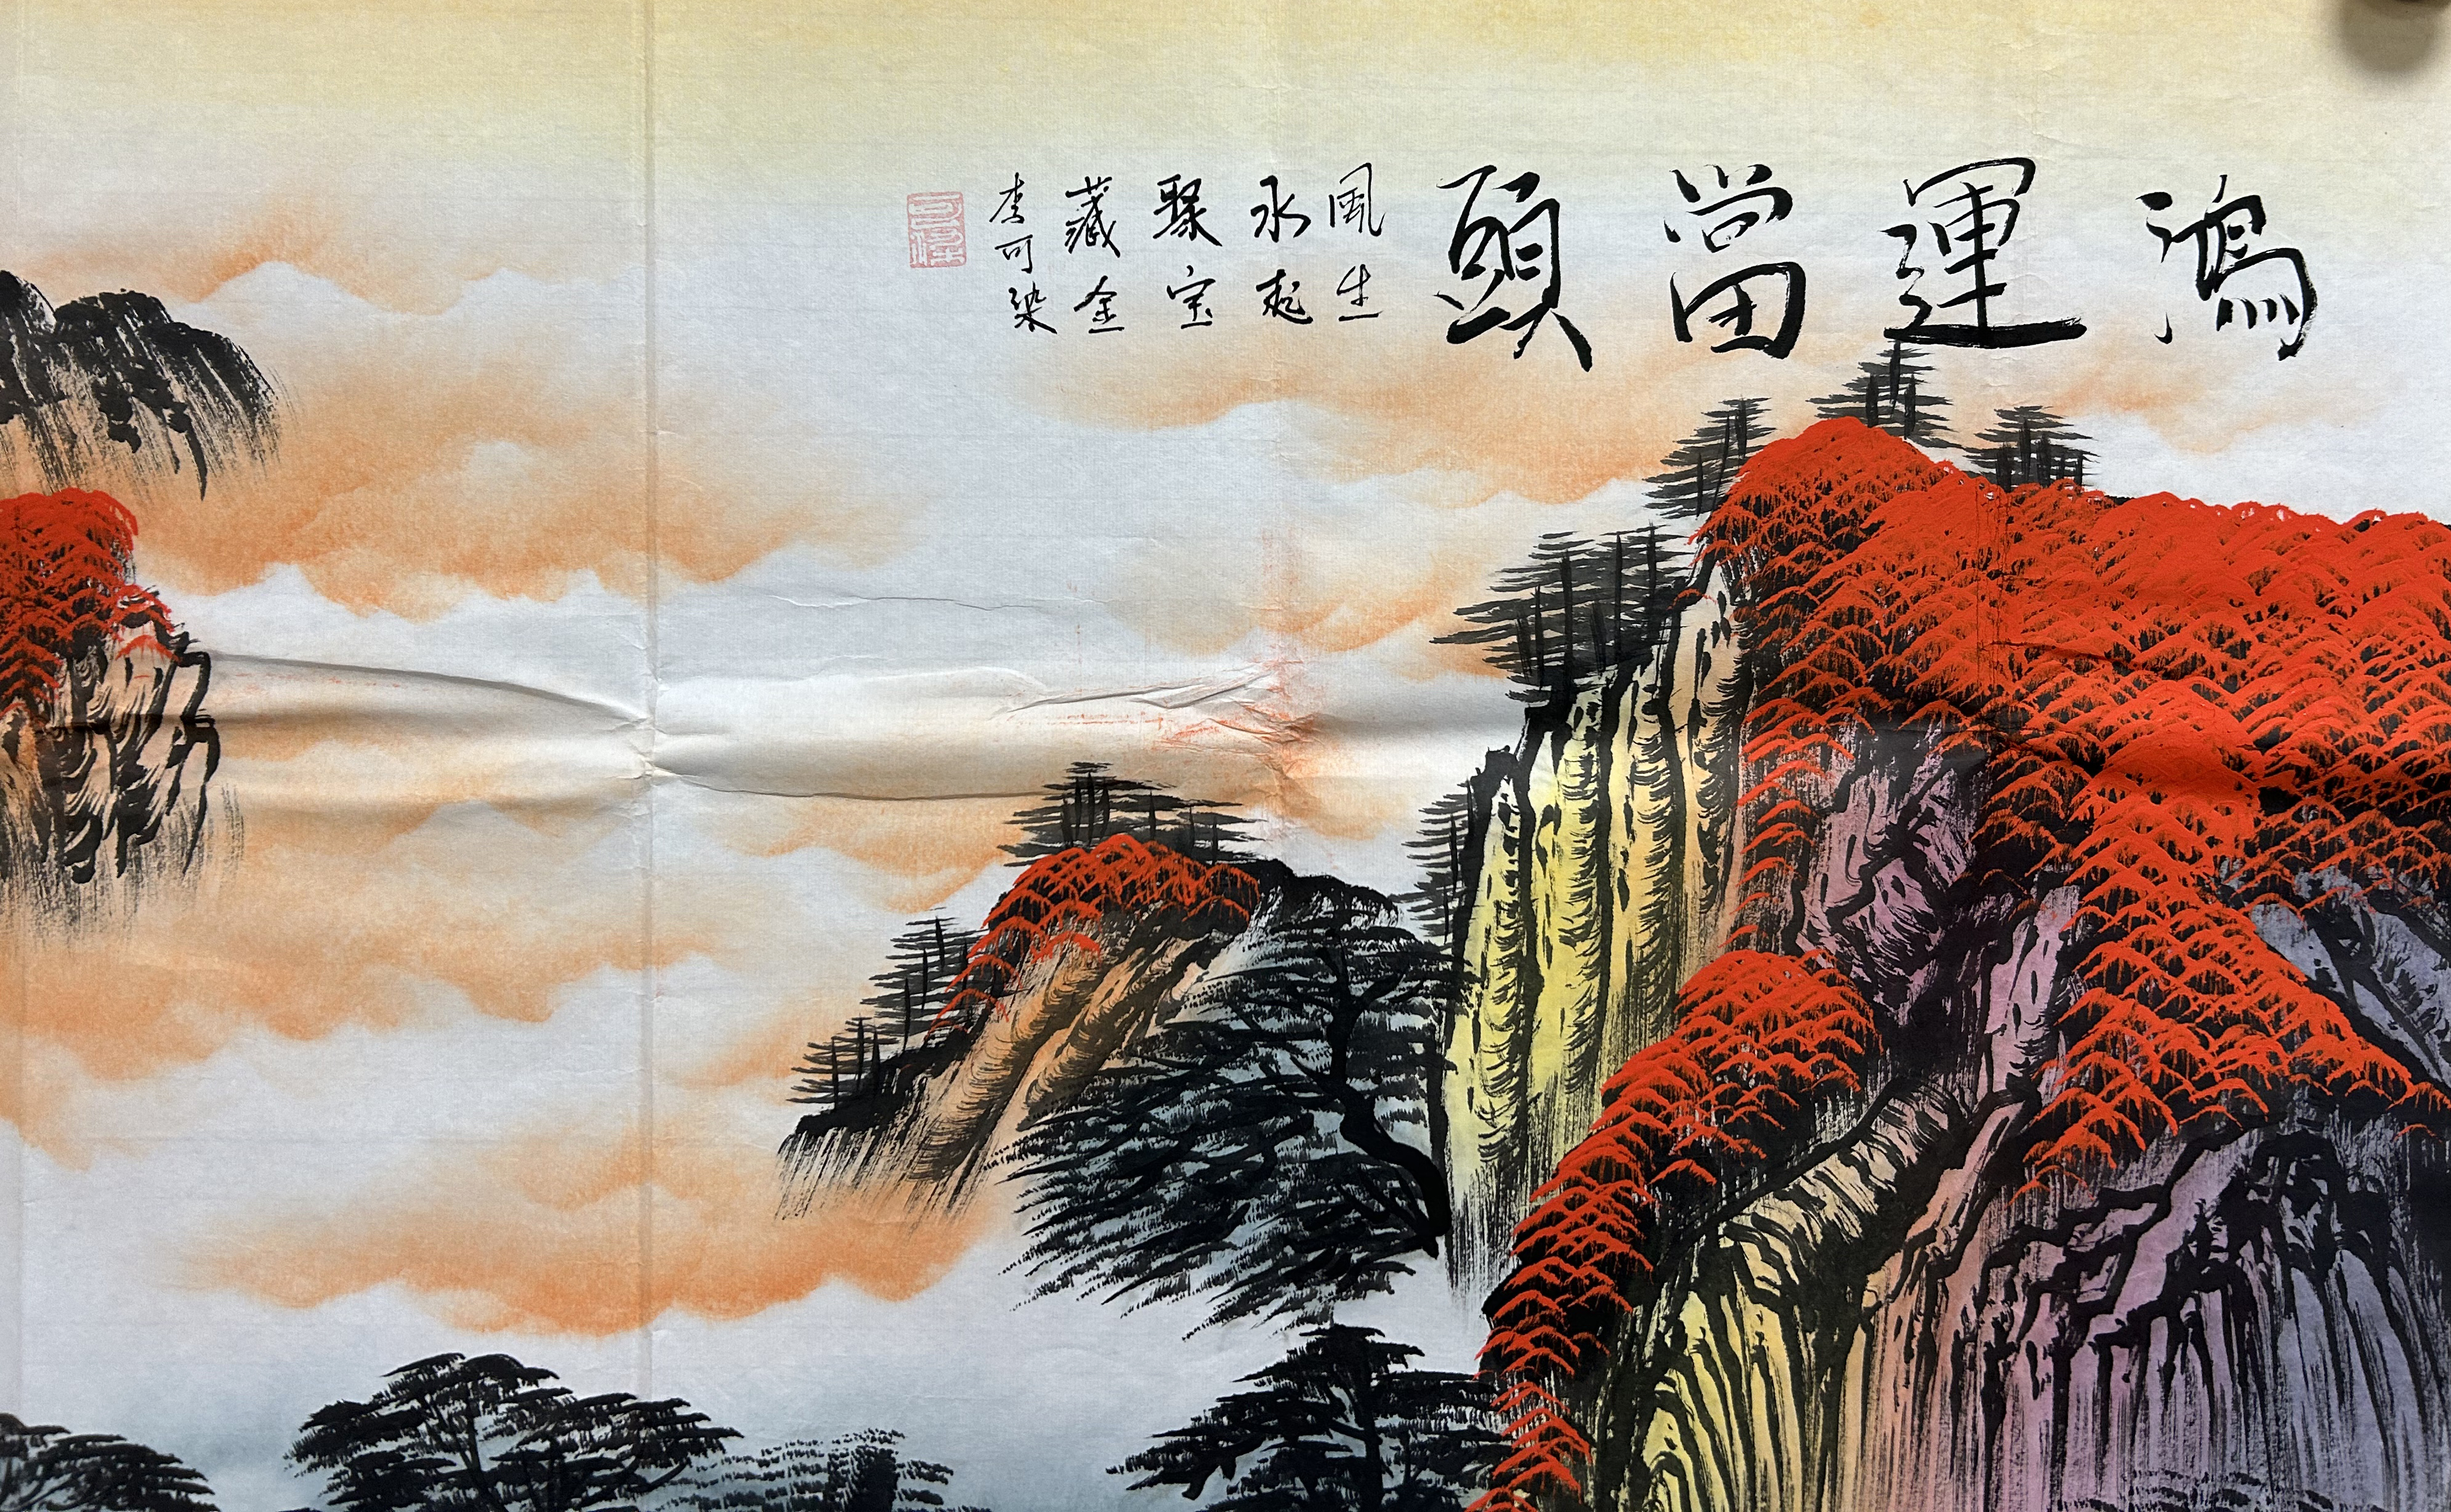 鴻運當頭
風生
水起
聚宝
藏金
李可染